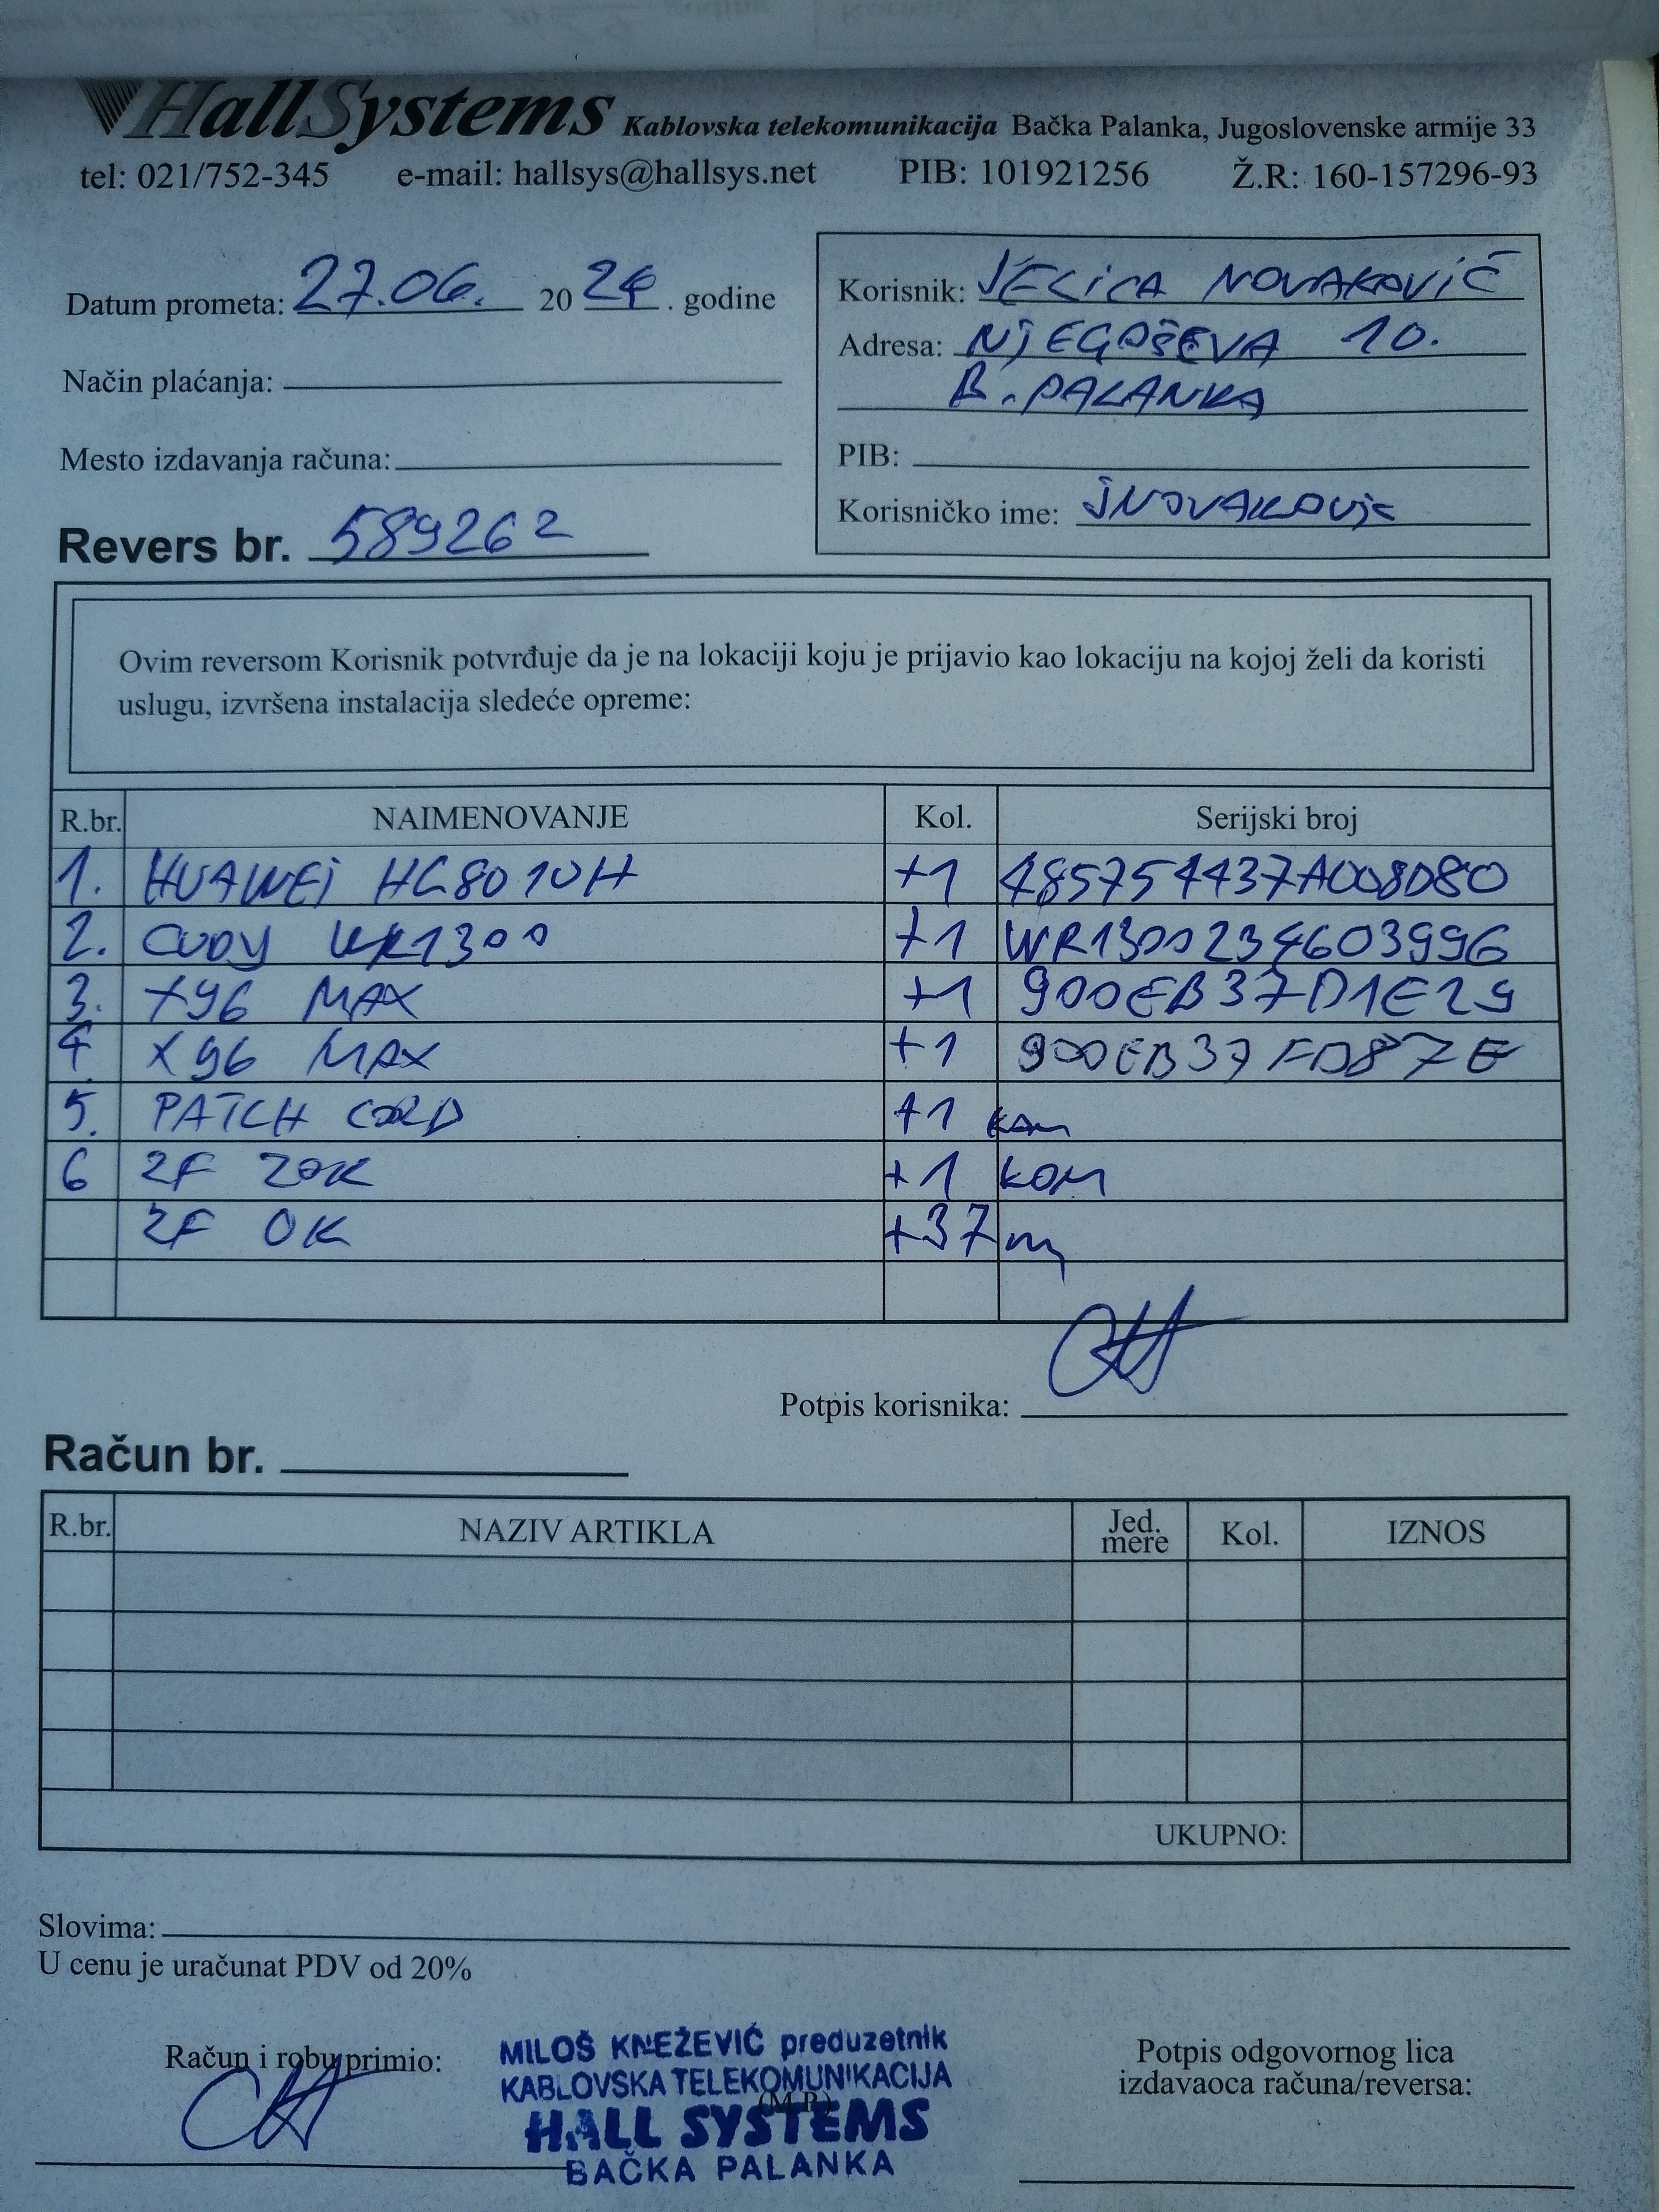 HallSystems Kablovska telekomunikacija Bačka Palanka, Jugoslovenske armije 33
tel: 021/752-345 e-mail: hallsys@hallsys.net PIB: 101921256 Ž.R: 160-157296-93
Datum prometa: 27.06. 2024. godine
Način plaćanja:
Mesto izdavanja računa:
Revers br. 589262
Korisnik: JELICA NOVAKOVIĆ
Adresa: NJEGOŠEVA 10.
B. PALANKA
PIB:
Korisničko ime: JNOVAKOVIC
Ovim reversom Korisnik potvrđuje da je na lokaciji koju je prijavio kao lokaciju na kojoj želi da koristi
uslugu, izvršena instalacija sledeće opreme:
R.br. NAIMENOVANJE Kol. Serijski broj
1. HUAWEI HG8010H +1 485754437A008D80
2. CUDY WR1300 +1 WR1300234603996
3. X96 MAX +1 900EB37D1E29
4 X96 MAX +1 900EB37FD87E
5. PATCH CORD +1 kom
6 2F ZOK +1 kom
2F OK +37 m
Potpis korisnika:
Račun br.
R.br. NAZIV ARTIKLA Jed. mere Kol. IZNOS
UKUPNO:
Slovima:
U cenu je uračunat PDV od 20%
Račun i robu primio:
MILOŠ KNEŽEVIĆ preduzetnik
KABLOVSKA TELEKOMUNIKACIJA
(M.P.)
HALL SYSTEMS
BAČKA PALANKA
Potpis odgovornog lica
izdavaoca računa/reversa: